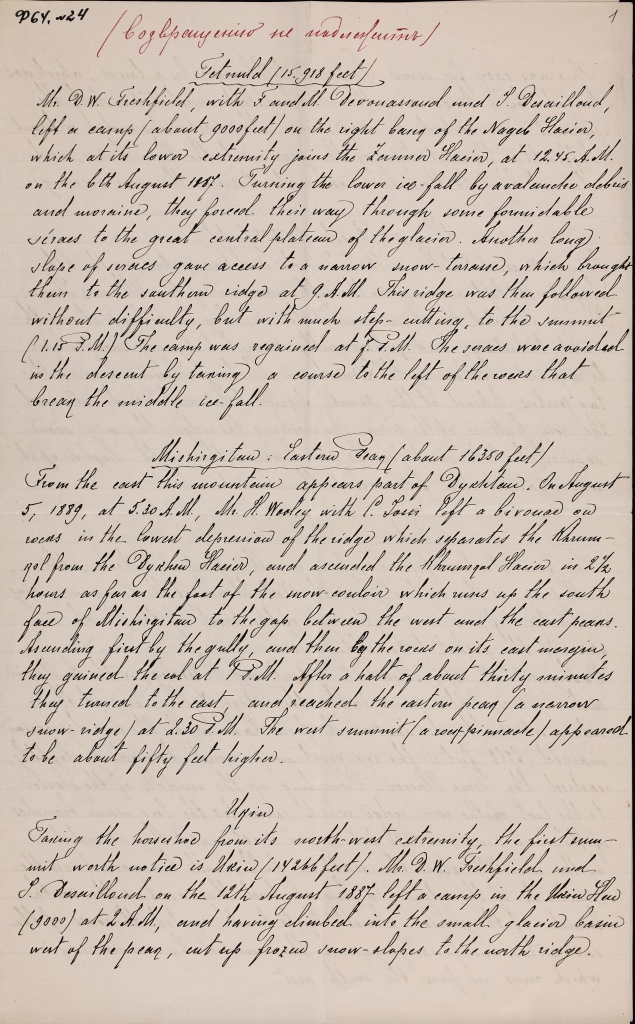 Ф64. №24
1
(Возвращению не подлежитъ)
Tetnuld (15.918 feet)
Mr. D.W. Freshfield, with F. and M. Devouassoud und J. Desailloud,
left a camp (about 9000 feet) on the right bank of the Nageb Glacier,
which at its lower extremity joins the Zanner Glacier, at 12.45. A.M.
on the 6th August 1887. Turning the lower ice-fall by avalanche debris
and moraine, they forced their way through some formidable
séracs to the great central plateau of the glacier. Another long
slope of seracs gave access to a narrow snow-terrasse, which brought
them to the southern ridge at 9. A.M. This ridge was then followed
without difficulty, but with much step-cutting, to the summit
(1.15 P.M.) The camp was regained at 7. P.M. The seracs were avoided
in the descent by taking a course to the left of the rocks that
break the middle ice-fall.
Mishirgitau: Eastern Peak (about 16350 feet)
From the east this mountain appears part of Dykhtau. On August
5, 1889, at 5.30 A.M., Mr. H. Wooley with C. Jossi left a bivouac on
rocks in the lowest depression of the ridge which separates the Khrum-
kol from the Dykhsu Glacier, and ascended the Khrumkol Glacier in 2½
hours as far as the foot of the snow-couloir which runs up the south
face of Mishirgitau to the gap between the west und the east peaks.
Ascending first by the gully, and then by the rocks on its east margin,
they gained the col at 1 P.M. After a halt of about thirty minutes
they turned to the east, and reached the eastern peak (a narrow
snow-ridge) at 2.30 P.M. The west summit (a rock-pinnacle) appeared
to be about fifty feet higher.
Ukiu
Taking the horseshoe from its north-west extremity, the first sum-
mit worth notice is Ukiu (14266 feet). Mr. D.W. Freshfield und
J. Desailloud on the 12th August 1887 left a camp in the Ukiu Glen
(9000) at 2 A.M., and having climbed into the small glacier basin
west of the peak, cut up frozen snow-slopes to the north ridge.